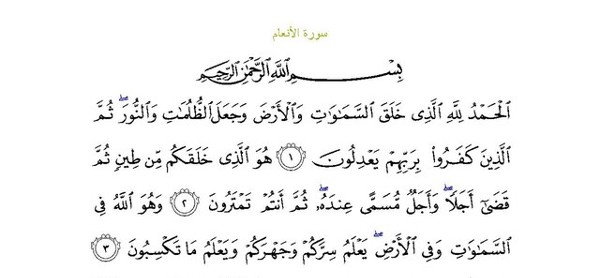 سورة الأنعام
بِسْمِ اللَّهِ الرَّحْمَٰنِ الرَّحِيمِ
الْحَمْدُ لِلَّهِ الَّذِى خَلَقَ السَّمَاوَاتِ وَالْأَرْضَ وَجَعَلَ الظُّلُمَاتِ وَالنُّورَ ۖ ثُمَّ
الَّذِينَ كَفَرُوا۟ بِرَبِّهِمْ يَعْدِلُونَ ۝١ هُوَ الَّذِى خَلَقَكُم مِّن طِينٍ ثُمَّ
قَضَىٰٓ أَجَلًا ۖ وَأَجَلٌ مُّسَمًّى عِندَهُۥ ۖ ثُمَّ أَنتُمْ تَمْتَرُونَ ۝٢ وَهُوَ اللَّهُ فِى
السَّمَاوَاتِ وَفِى الْأَرْضِ ۖ يَعْلَمُ سِرَّكُمْ وَجَهْرَكُمْ وَيَعْلَمُ مَا تَكْسِبُونَ ۝٣